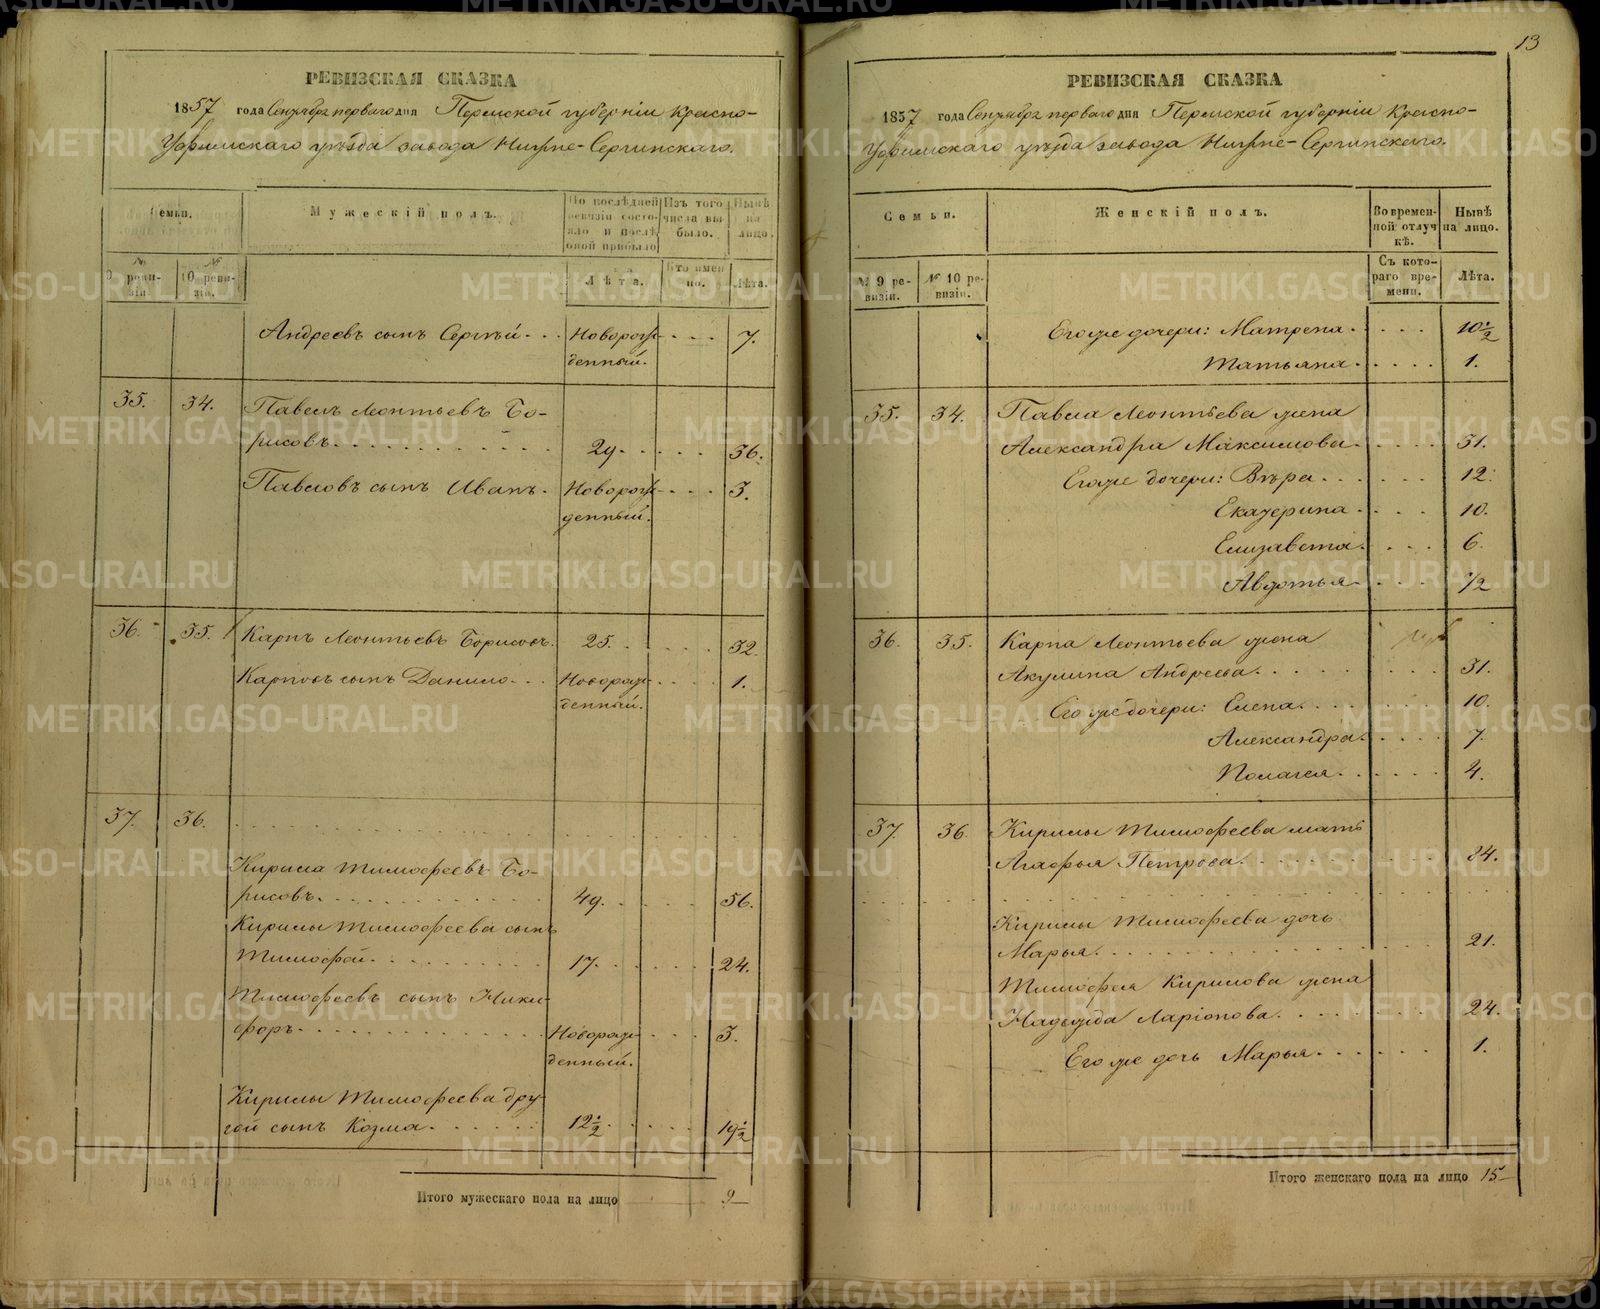 РЕВИЗСКАЯ СКАЗКА
1857 года Сентября перваго дня Пермской губерніи Красно-
Уфимскаго уѣзда завода Нижне-Сергинскаго.
Семьи.
Мужескій полъ.
По послѣдней ревизіи состояло и послѣ оной прибыло.
Изъ того числа выбыло.
Нынѣ на лицо.
№ 9 ревизіи.
№ 10 ревизіи.
Лѣта.
Кто именно.
Лѣта.
Андреевъ сынъ Сергѣй . . . Новорож- . . . 7.
денный.
35. 34. Павелъ Леонтьевъ Бо-
рисовъ . . . 29. . . . 36.
Павловъ сынъ Иванъ. Новорож- . . . 3.
денный.
36. 35. Карпъ Леонтьевъ Борисовъ. 25. . . . 32.
Карповъ сынъ Данило . . . Новорож- . . . 1.
денный.
37. 36. . . .
Кирила Тимофеевъ Бо-
рисовъ . . . 49. . . . 56.
Кирилы Тимофеева сынъ
Тимофей . . . 17. . . . 24.
Тимофеевъ сынъ Ники-
форъ . . . Новорож- . . . 3.
денный.
Кирилы Тимофеева дру-
гой сынъ Козма . . . 12½ . . . 19½
Итого мужескаго пола на лицо 9
13
РЕВИЗСКАЯ СКАЗКА
1857 года Сентября перваго дня Пермской губерніи Красно-
Уфимскаго уѣзда завода Нижне-Сергинскаго.
Семьи.
Женскій полъ.
Во временной отлучкѣ.
Нынѣ на лицо.
№ 9 ревизіи.
№ 10 ревизіи.
Съ котораго времени.
Лѣта.
Его же дочери: Матрена . . . 10½
Татьяна . . . 1.
35. 34. Павла Леонтьева жена
Александра Максимова . . . 31.
Его же дочери: Вѣра . . . 12.
Екатерина . . . 10.
Елизавета . . . 6.
Авдотья . . . ½
36. 35. Карпа Леонтьева жена
Акулина Андреева . . . 31.
Его же дочери: Елена . . . 10.
Александра . . . 7.
Полагея . . . 4.
37. 36. Кирилы Тимофеева мать
Агафья Петрова . . . 84.
Кирилы Тимофеева дочь
Марья . . . 21.
Тимофея Кирилова жена
Надежда Ларіонова . . . 24.
Его же дочь Марья . . . 1.
Итого женскаго пола на лицо 15
METRIKI.GASO-URAL.RU